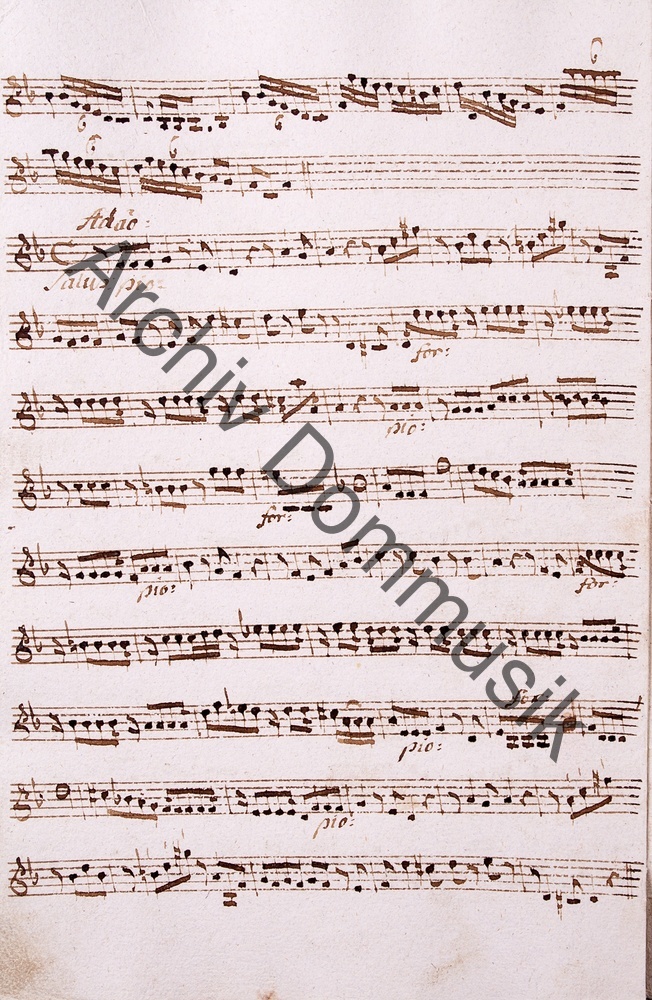 6
6 6
6 6
Adăo:
Salus pia:
for:
pio:
for:
pio: for
for
pio:
pio:
Archiv Dommusik